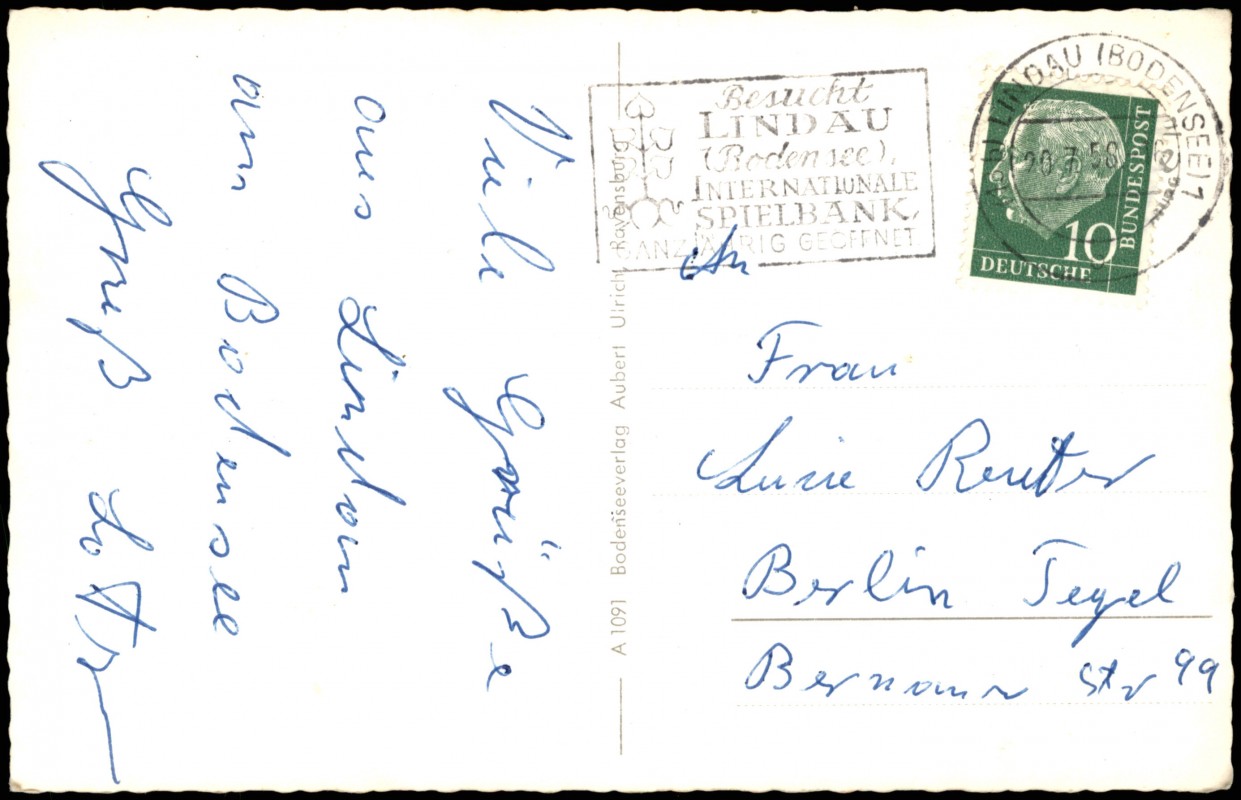 Viele Grüße
aus Lindau
am Bodensee
Gruß
A 1091 Bodenseeverlag Aubert Ulrich Ravensburg
Besucht
LINDAU
(Bodensee),
INTERNATIONALE
SPIELBANK,
GANZJÄHRIG GEÖFFNET
LINDAU (BODENSEE) 1
DEUTSCHE
BUNDESPOST
10
An
Frau
Lucie Reuter
Berlin Tegel
Bernauer Str 99